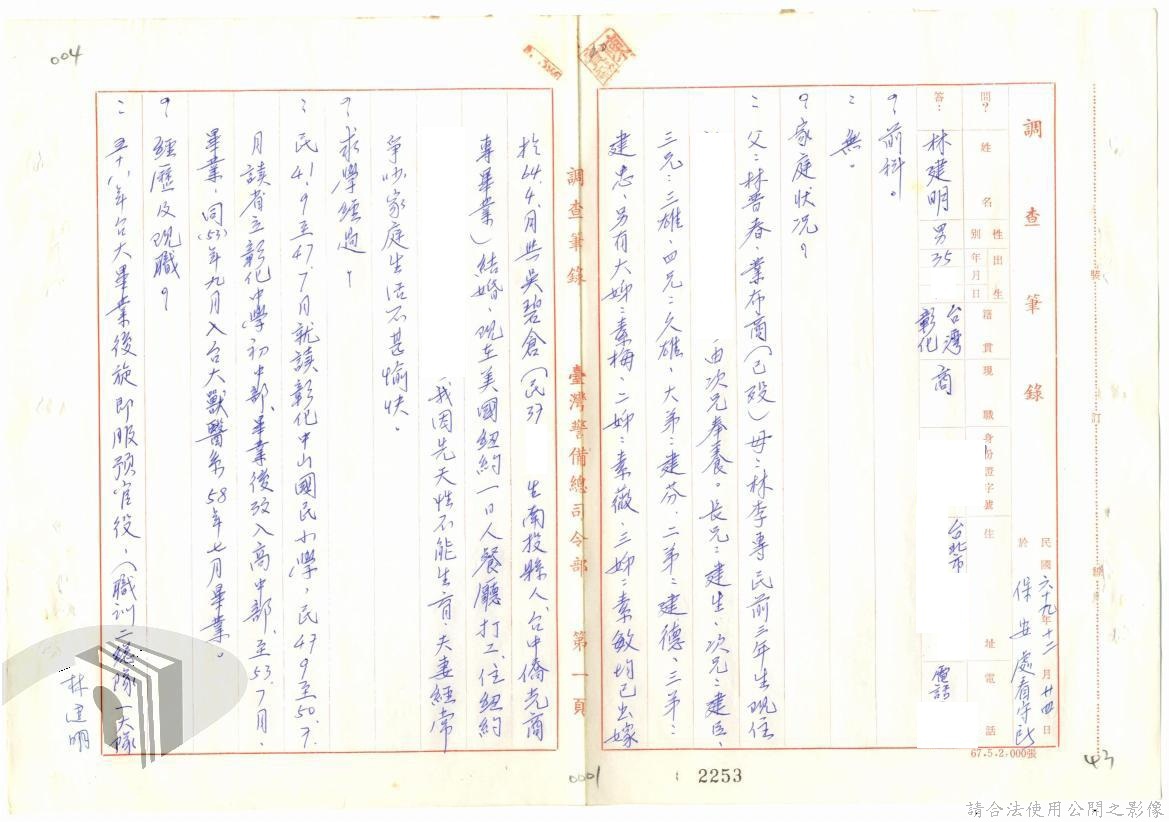 調查筆錄
民國六十九年十二月廿四日
於保安處看守所
問？姓名 性別 出生年月日 籍貫 現職 身份證字號 住址 電話
答：林建明 男 35 台灣彰化 商 台北市 電話
？前科。
：無。
？家庭狀況？
：父：林普春、業布商（已歿）母：林李專民前三年生現住
由次兄奉養。長兄：建生、次兄：建臣、
三兄：三雄、四兄：久雄、大弟：建芬、二弟：建德、三弟：
建忠、另有大姊：素梅、二姊：素薇、三姊：素敏均已出嫁
調查筆錄 臺灣警備總司令部 第一頁
於64.4.月與吳碧倉（民37 生南投縣人、台中僑光商
專畢業）結婚、現在美國紐約一日人餐廳打工、住紐約
我因先天性不能生育、夫妻經常
爭吵家庭生活不甚愉快。
？求學經過？
：民41.9至47.7月就讀彰化中山國民小學，民47.9至50.7.
月讀省立彰化中學初中部、畢業後改入高中部、至53.7月、
畢業、同(53)年九月入台大獸醫系58年七月畢業。
？經歷及現職？
：五十八年台大畢業後旋即服預官役、（職訓二總隊一大隊
林建明
67.5.2,000張
裝訂線
004
43
0001
2253
請合法使用公開之影像